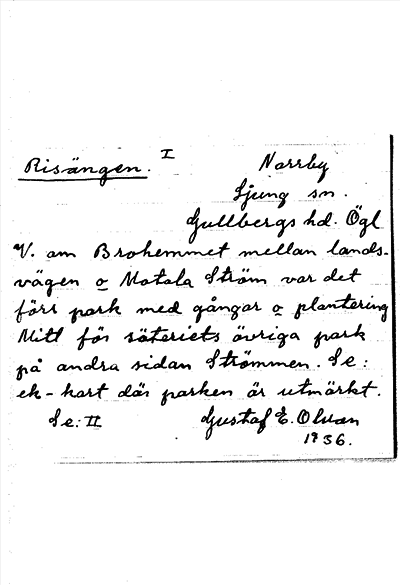 Risängen. I Norrby
Ljung sn.
Gullbergs hd. Ögl
V. om Brohemmet mellan lands-
vägen o Motala Ström var det
förr park med gångar o plantering
Mitt för säteriets övriga park
på andra sidan Strömmen. Se:
ek-kart där parken är utmärkt.
Se: II Gustaf E. Olsson
1936.